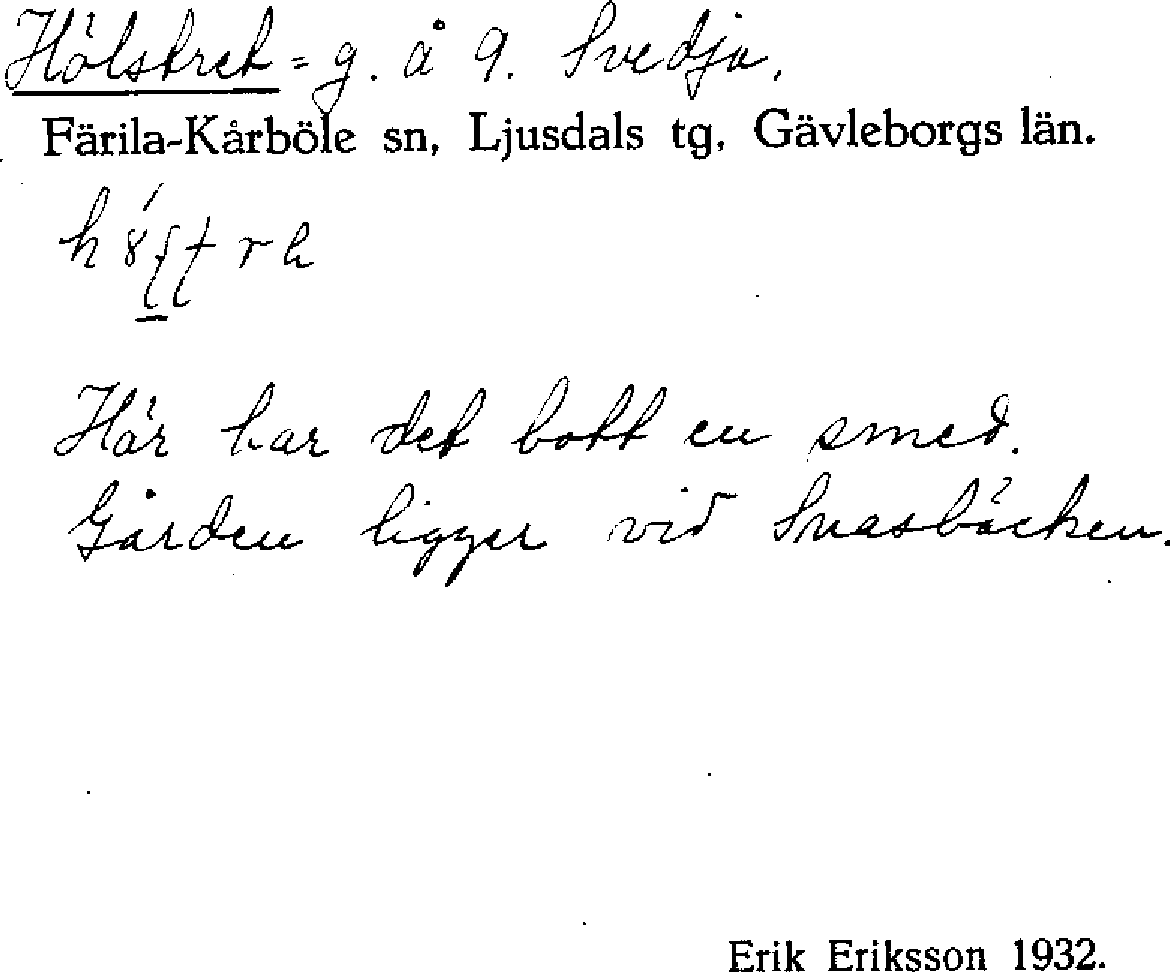 Hölstret = g. å 9. Svedja.
Färila-Kårböle sn, Ljusdals tg, Gävleborgs län.
Här har det bott en smed.
Gården ligger vid Snasbäcken.
Erik Eriksson 1932.